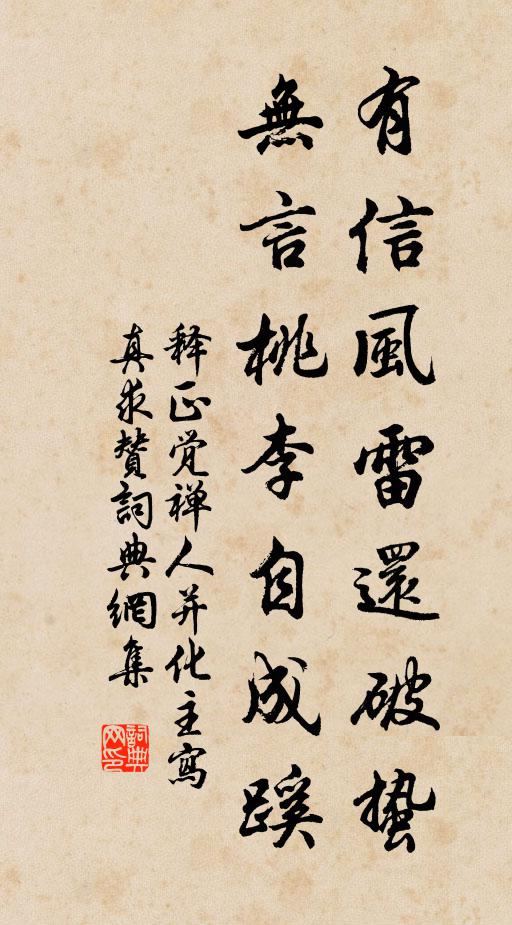 有信風雷還破蟄
無言桃李自成蹊
释正覚禅人并化主寫
真求賛詞典網集
詞典网印